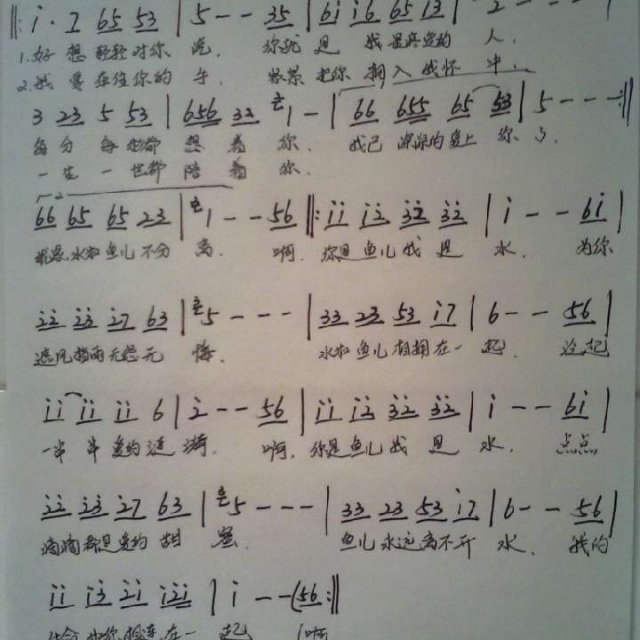 ‖: i · 7 65 53 | 5 - - 35 | 6i i6 65 i3 | 2 - - -
1.好想轻轻对你说. 你就是我最疼爱的人.
2.我要牵住你的手. 把你拥入我怀中.
3 23 5 53 | 656 32 2 1 - | 66 655 65 53 | 5 - - - :‖
每分每秒都想着你. 我已深深的爱上你了.
一生一世都陪着你.
66 65 65 23 | 2 1 - - 56 ‖: ii i2 32 32 | i - - 6i |
水和鱼儿不分离. 啊. 你是鱼儿我是水. 为你
22 23 27 63 | 5 - - - | 33 23 53 i7 | 6 - - 56 |
遮风挡雨无怨无悔. 水和鱼儿相拥在一起. 泛起
ii ii ii 6 | 2 - - 56 | ii i2 32 32 | i - - 6i |
一串串爱的涟漪. 啊. 你是鱼儿我是水. 点点
22 23 27 63 | 5 - - - | 33 23 53 i7 | 6 - - 56 |
滴滴都是爱的甜蜜. 鱼儿永远离不开水. 我的
ii i3 2i i2i | i - - (56 :‖
在一起 (啊